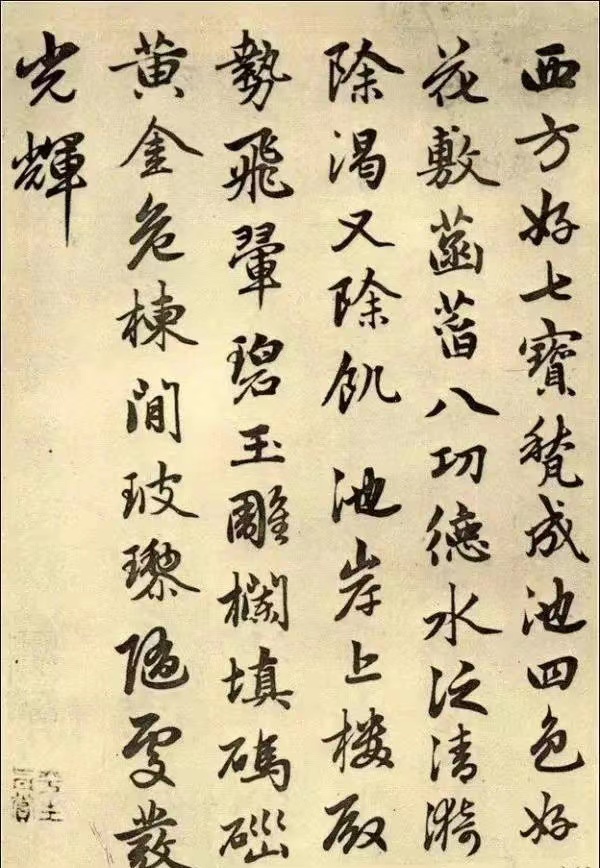 西方好七寶甃成池四色好
花敷菡萏八功德水泛清漪
除渴又除飢 池岸上樓殿
勢飛翬碧玉雕欄填碼碯
黄金危棟間玻瓈隨處發
光輝